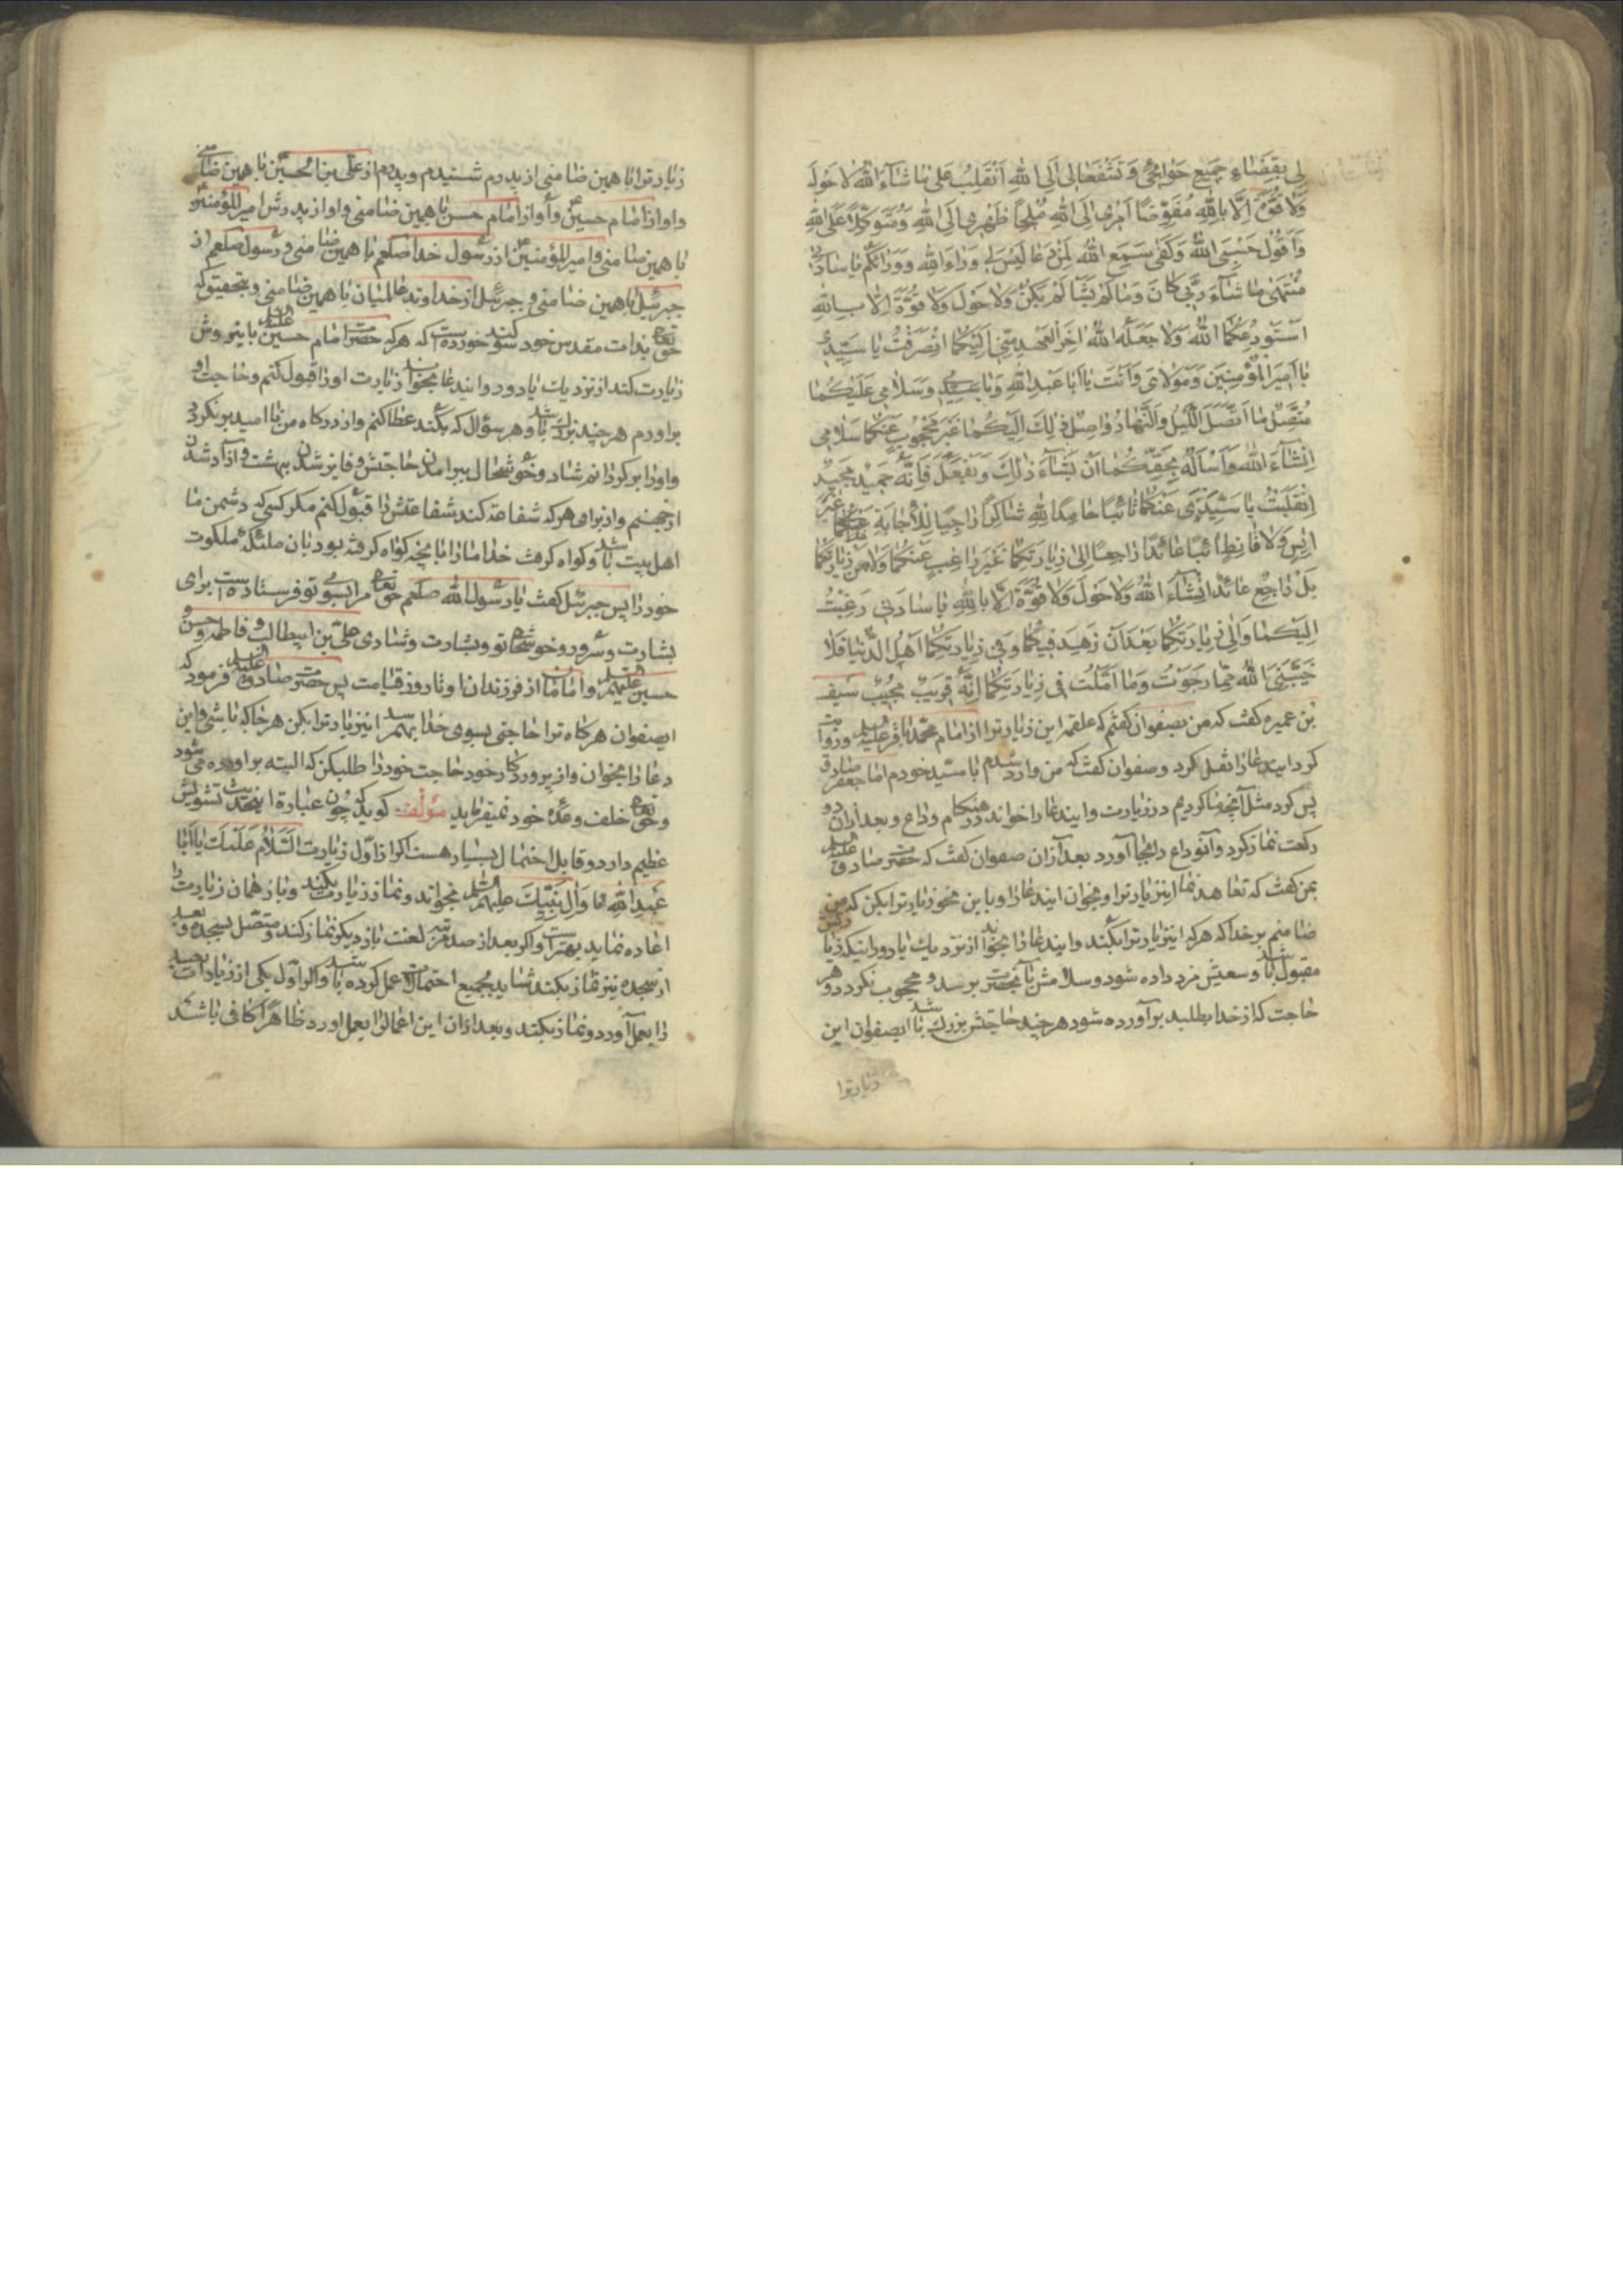 لِی بِقَضَاءِ جَمِیعِ حَوَائِجِی وَتَشْفَعَا لِی اِلَی اللهِ اَنْقَلِبُ عَلَی مَا شَاءَ اللهُ لَا حَوْلَ
وَلَا قُوَّةَ اِلَّا بِاللهِ مُفَوِّضًا اَمْرِی اِلَی اللهِ مُلْجِأً ظَهْرِی اِلَی اللهِ وَمُتَوَکِّلًا عَلَی اللهِ
وَاَقُولُ حَسْبِیَ اللهُ وَکَفَی سَمِعَ اللهُ لِمَنْ دَعَا لَیْسَ لِی وَرَاءَ اللهِ وَوَرَائَکُمْ یَا سَادَتِی
مُنْتَهَی مَا شَاءَ رَبِّی کَانَ وَمَا لَمْ یَشَأْ لَمْ یَکُنْ وَلَا حَوْلَ وَلَا قُوَّةَ اِلَّا بِاللهِ
اَسْتَوْدِعُکُمَا اللهَ وَلَا جَعَلَهُ اللهُ اٰخِرَ الْعَهْدِ مِنِّی اِلَیْکُمَا انْصَرَفْتُ یَا سَیِّدِی
یَا اَمِیرَ الْمُؤْمِنِینَ وَمَوْلَایَ وَاَنْتَ یَا اَبَا عَبْدِ اللهِ وَیَا سَیِّدِی وَسَلَامِی عَلَیْکُمَا
مُتَّصِلٌ مَا اتَّصَلَ اللَّیْلُ وَالنَّهَارُ وَاصِلٌ ذٰلِکَ اِلَیْکُمَا غَیْرَ مَحْجُوبٍ عَنْکُمَا سَلَامِی
اِنْشَاءَ اللهُ وَاَسْأَلُهُ بِحَقِّکُمَا اَنْ یَشَاءَ ذٰلِکَ وَیَفْعَلَ فَاِنَّهُ حَمِیدٌ مَجِیدٌ
اِنْقَلَبْتُ یَا سَیِّدَیَّ عَنْکُمَا تَائِبًا حَامِدًا لِلهِ شَاکِرًا رَاجِیًا لِلْاِجَابَةِ غیر
اٰیِسٍ وَلَا قَانِطٍ اٰئِبًا عَائِدًا رَاجِعًا اِلَی زِیَارَتِکُمَا غَیْرَ رَاغِبٍ عَنْکُمَا وَلَا مِنْ زِیَارَتِکُمَا
بَلْ رَاجِعٌ عَائِدٌ اِنْشَاءَ اللهُ وَلَا حَوْلَ وَلَا قُوَّةَ اِلَّا بِاللهِ یَا سَادَتِی رَغِبْتُ
اِلَیْکُمَا وَاِلَی زِیَارَتِکُمَا بَعْدَ اَنْ زَهِدَ فِیکُمَا وَفِی زِیَارَتِکُمَا اَهْلُ الدُّنْیَا فَلَا
خَیَّبَنِیَ اللهُ مِمَّا رَجَوْتُ وَمَا اَمَّلْتُ فِی زِیَارَتِکُمَا اِنَّهُ قَرِیبٌ مُجِیبٌ سیف
بن عمیره کفت که من بصفوان کفتم که علقمه این زیارترا از امام محمد باقر علیه السلم روایت
کرد اینِدعا را نقل کرد وصفوان کفت که من وارد شدم با سید خودم امام جعفر صادق
پس کرد مثل آنچه ما کردیم در زیارت واینِدعا را خواند در هنکام وداع وبعد ازان دو
رکعت نماز کرد وآنوداع را بجا آورد بعد از آن صفوان کفت که حضرت صادق علیه السلم
بمن کفت که تعاهد نما اینزیارترا وبخوان اینِدعا را وباین نحو زیارترا بکن که من
ضامنم بر خدا که هرکه اینزیارترا بکند واینِدعا را بخواند از نزدیک یا دور اینکه زیارتش
مقبول باشد وسعیش مزد داده شود وسلامش بآنحضرت برسد ومحجوب نکردد وهر
حاجت که از خدا بطلبد برآورده شود هرچند حاجتش بزرک باشد ایصفوان این
زیارترا
زیارترا با همین ضامنی از پدرم شنیدم وپدرم از علی بن الحسین با همین ضامنی
واو از امام حسین واو از امام حسن با همین ضامنی واو از پدرش امیرالمؤمنین
با همین ضامنی وامیرالمؤمنین از رسول خدا صلعم با همین ضامنی ورسول صلعم از
جبرئیل با همین ضامنی وجبرئیل از خداوند عالمیان با همین ضامنی وبتحقیق که
حق تع بذات مقدس خود سوکند خورده است که هرکه حضرت امام حسین علیه السلم باینروش
زیارت کند از نزدیک یا دور واینِدعا بخواند زیارت اورا قبول کنم وحاجت او
براورم هرچند بزرک باشد وهر سؤال که بکند عطا کنم واز درکاه من ناامید برنکردد
واورا برکردانم شاد وخوشحال ببرامدن حاجتش وفایز شدن ببهشت وآزاد شدن
از جهنم واز برای هرکه شفاعة کند شفاعتش را قبول کنم مکر کسی که دشمن ما
اهل بیت باشد وکواه کرفت خدا مارا بانچه کواه کرفته بود بان ملئکه ملکوت
خود را پس جبرئیل کفت یا رسول الله صلعم حق تع مرا بسوی تو فرستاده است برای
بشارت وسرور وخوشحالی تو وبشارت وشادی علی بن ابیطالب وفاطمه وحسن و
حسین علیهم السلم وامامان از فرزندان او تا روز قیامت پس حضرت صادق علیه السلم فرمود که
ایصفوان هرکاه ترا حاجتی بسوی خدا بهمرسد اینزیارترا بکن هرجا که باشی واین
دعا را بخوان واز پروردکار خود حاجت خود را طلب کن که البته براورده می شود
وحق تع خلف وعدهٔ خود نمیفرماید مؤلف کوید که چون عبارة اینحدیث تشویش
عظیم دارد وقابل احتمال بسیار هست اکر از اول زیارت السَّلَامُ عَلَیْکَ یَا اَبَا
عَبْدِ اللهِ تا وَآلِ نَبِیِّکَ علیهم السلم بخواند ونماز زیارت بکند وباز همان زیارت را
اعاده نماید بهتر است واکر بعد از صد مرتبه لعنت باز دیکر نماز کند ومتصل بسجده وبعد
از سجده نیز نماز بکند شاید بجمیع احتمالات عمل کرده باشد واکر اول یکی از زیارات بعید
را بعمل آورد ونماز بکند وبعد ازان این اعمال را بعمل اورد ظاهراً کافی باشد